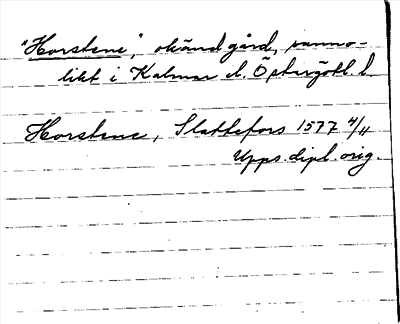 "Horstene", okänd gård, sanno-
likt i Kalmar el. Östergötl. l.
Horstene, Slattefors 1577 4/11
Upps. dipl. orig.